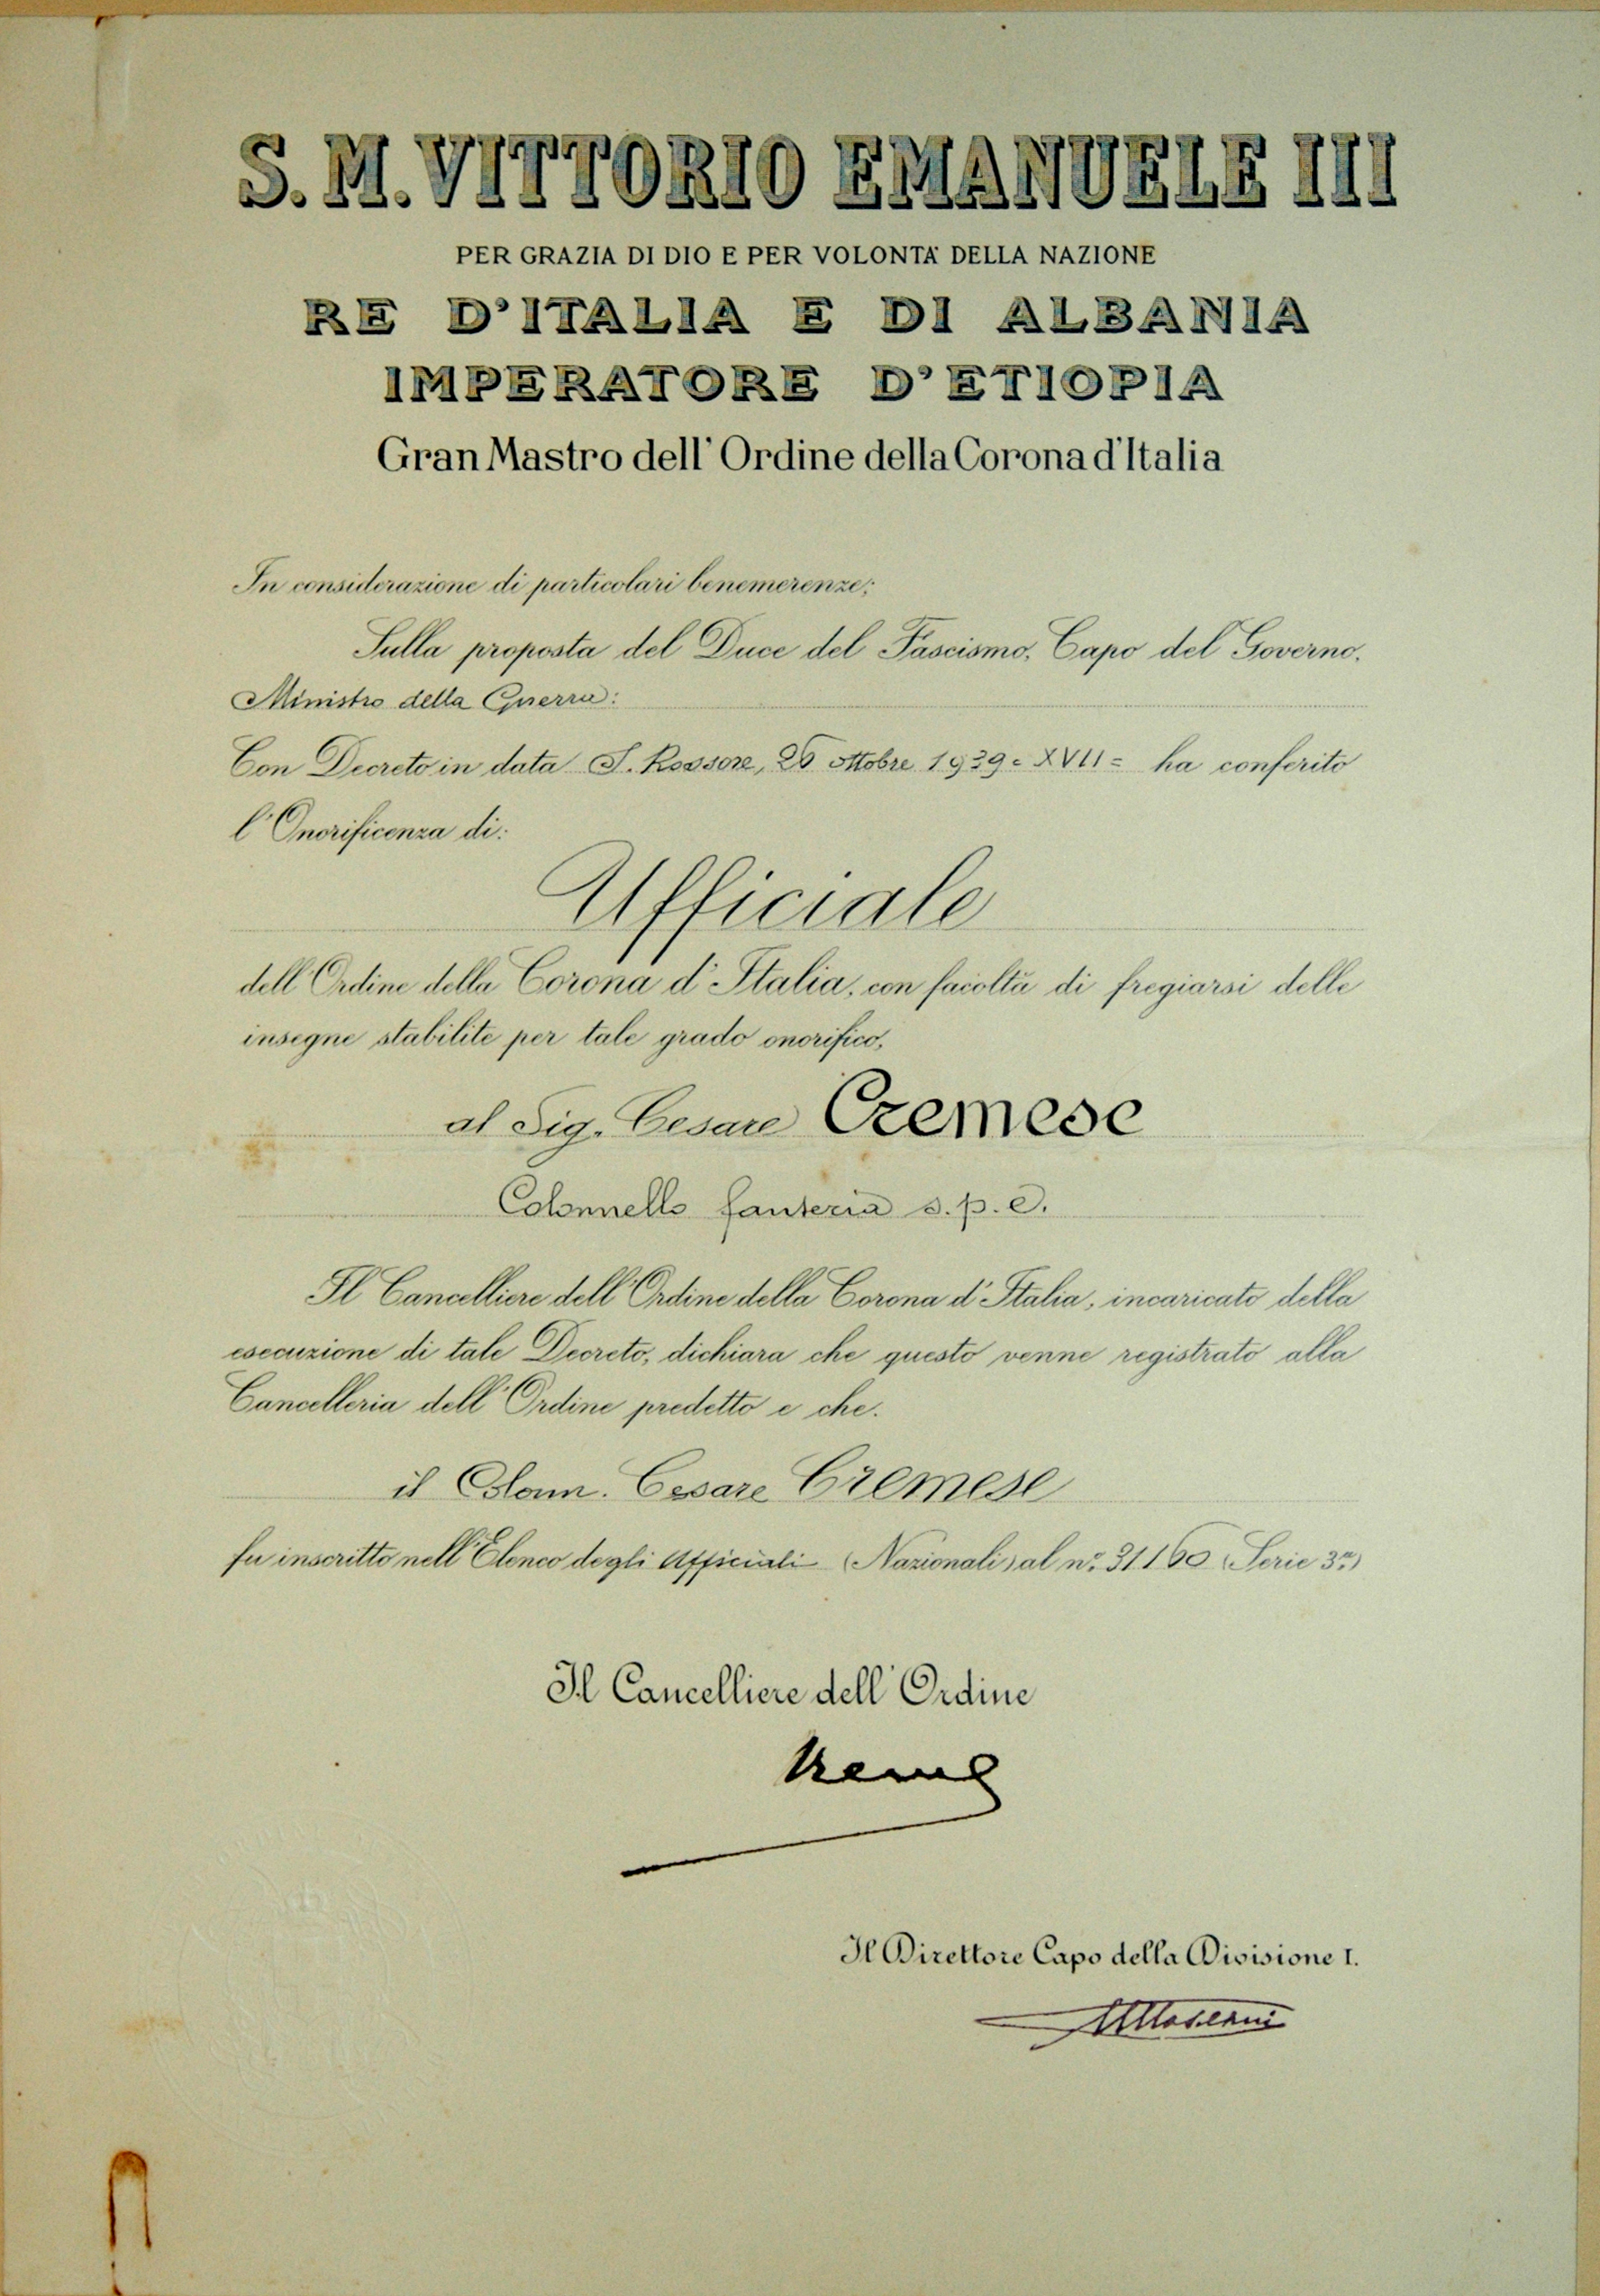 S. M. VITTORIO EMANUELE III
PER GRAZIA DI DIO E PER VOLONTA' DELLA NAZIONE
RE D'ITALIA E DI ALBANIA
IMPERATORE D'ETIOPIA
Gran Mastro dell'Ordine della Corona d'Italia
In considerazione di particolari benemerenze;
Sulla proposta del Duce del Fascismo, Capo del Governo,
Ministro della Guerra:
Con Decreto in data S. Rossore, 26 ottobre 1939 = XVII = ha conferito
l'Onorificenza di:
Ufficiale
dell'Ordine della Corona d'Italia, con facoltà di fregiarsi delle
insegne stabilite per tale grado onorifico,
al Sig. Cesare Cremese
Colonnello fanteria s.p.e.
Il Cancelliere dell'Ordine della Corona d'Italia, incaricato della
esecuzione di tale Decreto, dichiara che questo venne registrato alla
Cancelleria dell'Ordine predetto e che.
il Colonn. Cesare Cremese
fu inscritto nell'Elenco degli Ufficiali (Nazionali) al n.° 31160 (Serie 3ª)
Il Cancelliere dell'Ordine
Il Direttore Capo della Divisione I.